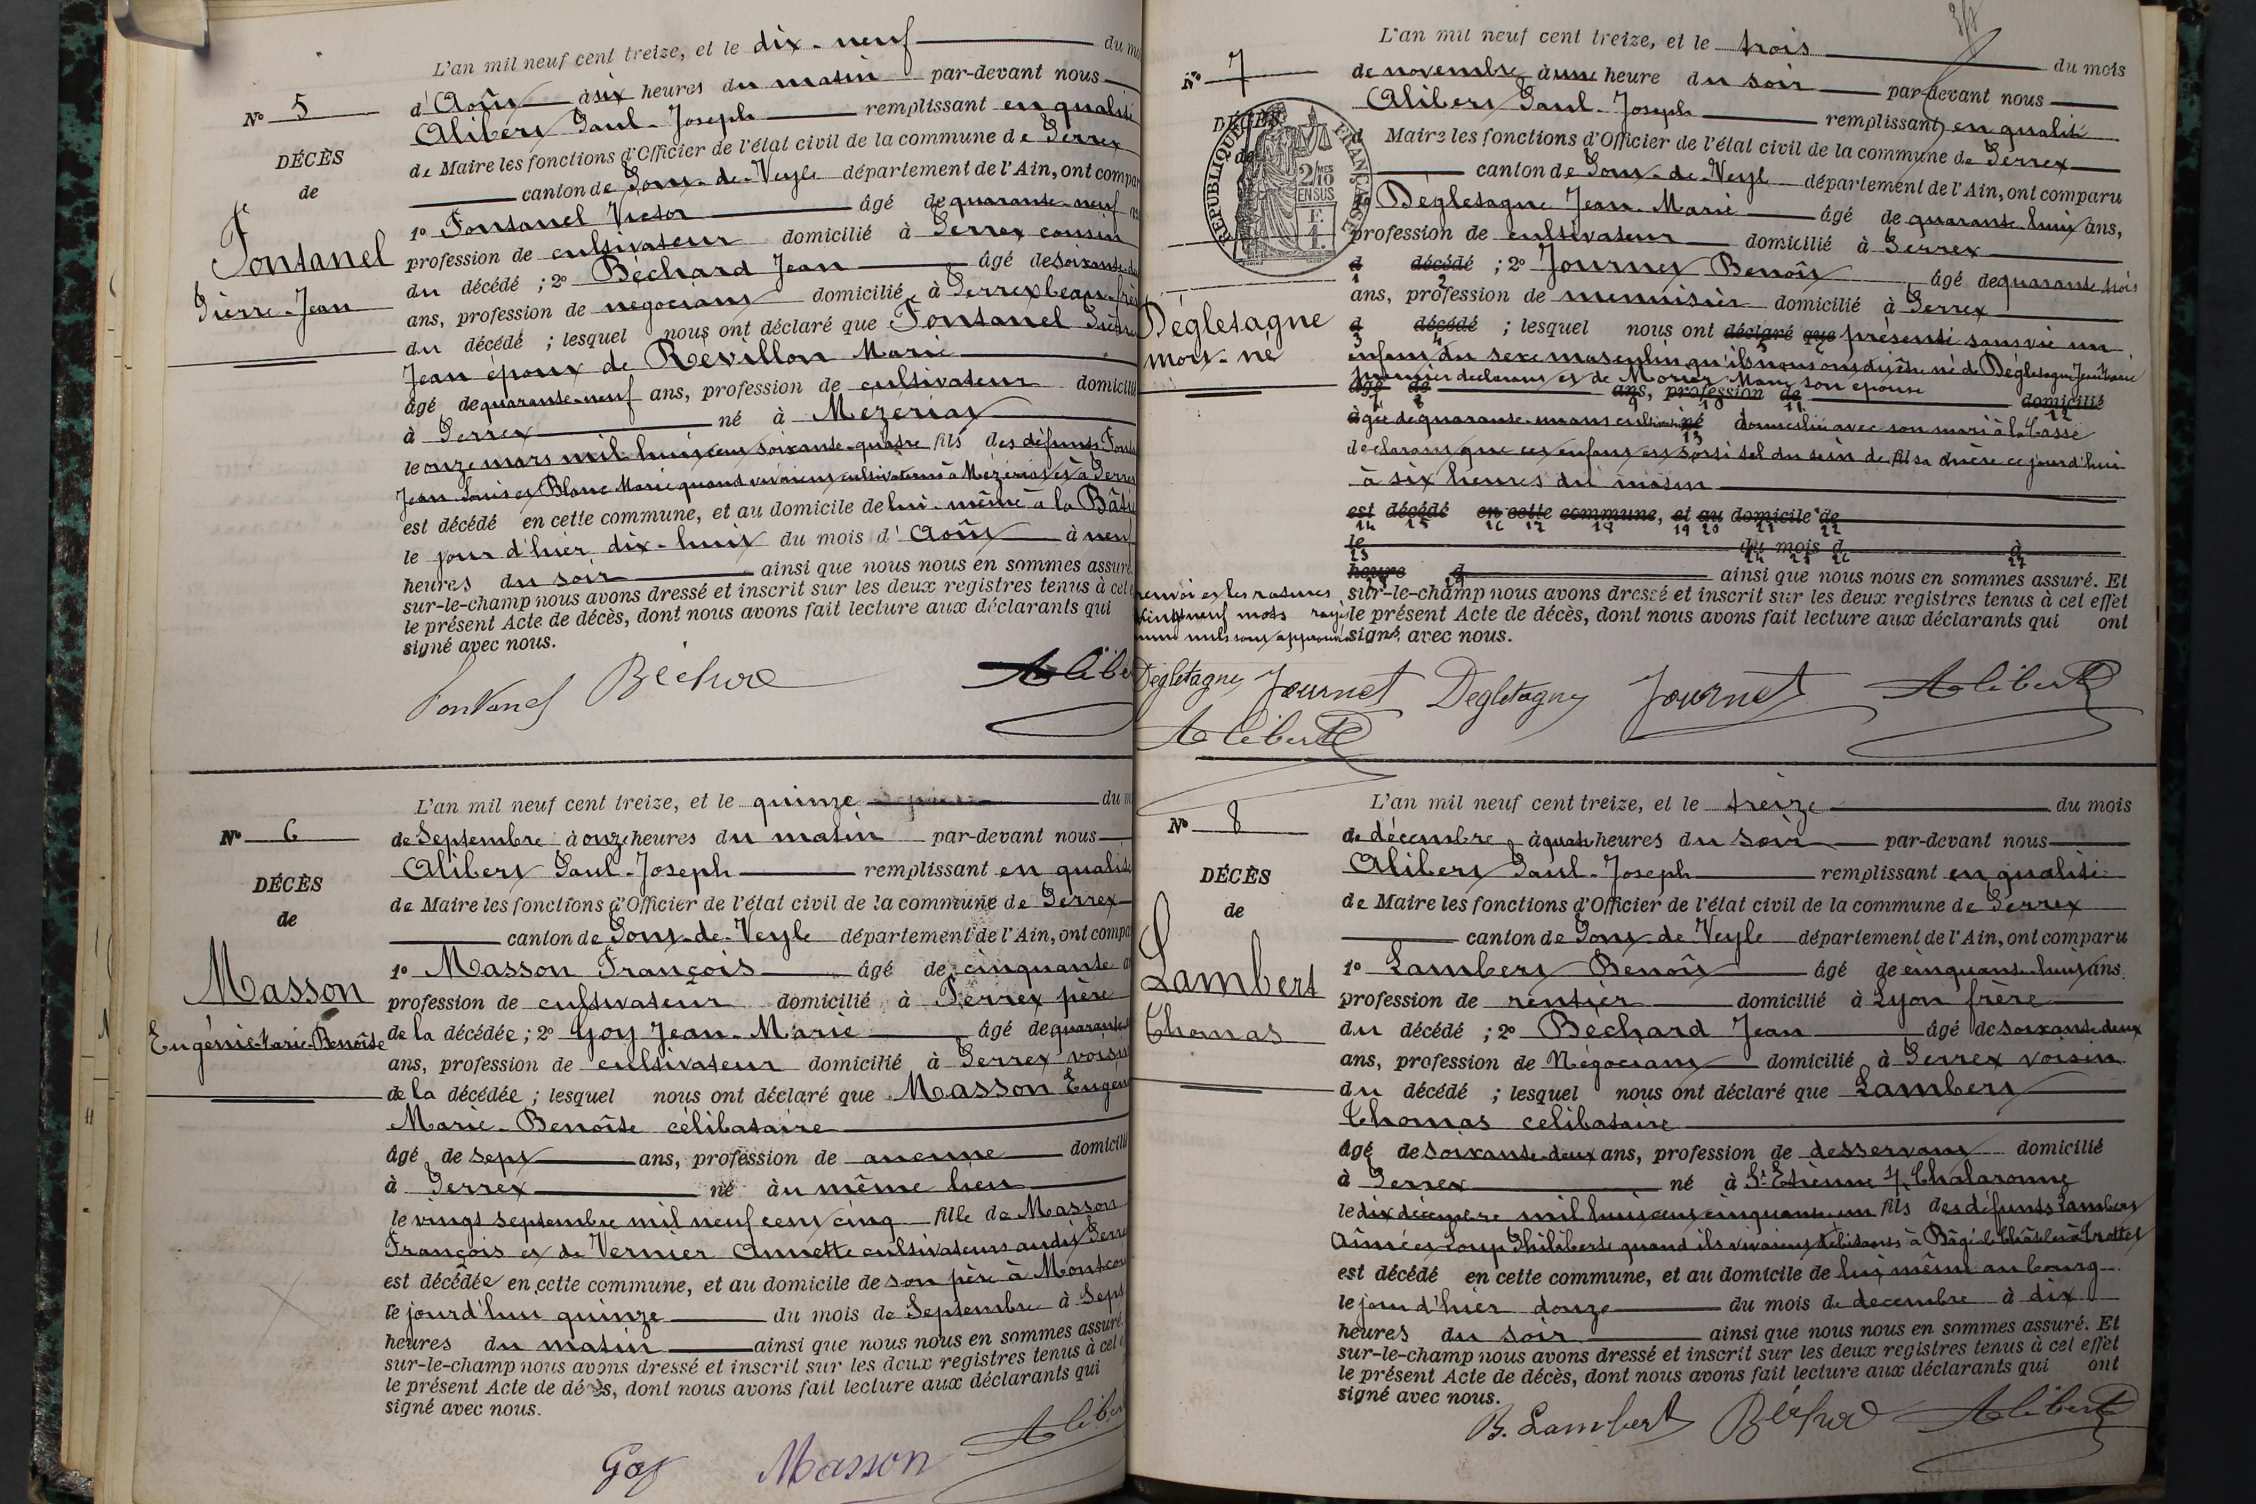 L'an mil neuf cent treize, et le dix-neuf du
N° 5
d'Août à six heures du matin par-devant nous
Alibert Paul-Joseph remplissant en qualité
DÉCÈS
de Maire les fonctions d'Officier de l'état civil de la commune de Perrex
de
canton de Pont-de-Veyle département de l'Ain, ont compar
Fontanel
Pierre-Jean
1° Fontanel Victor âgé de quarante-neuf
profession de cultivateur domicilié à Perrex cousin
du décédé ; 2° Béchard Jean âgé de soixante
ans, profession de négociant domicilié à Perrex beau-frèr
du décédé ; lesquel nous ont déclaré que Fontanel Pierre
Jean époux de Révillon Marie
âgé de quarante-neuf ans, profession de cultivateur domicilié
à Perrex né à Mézériat
le onze mars mil huit cent soixante-quatre fils des défunts Fonta
Jean Louis et Blanc Marie quand vivaient cultivateurs à Mézériat et à Perrex
est décédé en cette commune, et au domicile de lui-même à la Bâti
le jour d'hier dix-huit du mois d'Août à neuf
heures du soir ainsi que nous nous en sommes assuré.
sur-le-champ nous avons dressé et inscrit sur les deux registres tenus à cet e
le présent Acte de décès, dont nous avons fait lecture aux déclarants qui
signé avec nous.
Fontanel Béchard Alibe
L'an mil neuf cent treize, et le quinze du m
N° 6
de Septembre à onze heures du matin par-devant nous
Alibert Paul-Joseph remplissant en qualité
DÉCÈS
de Maire les fonctions d'Officier de l'état civil de la commune de Perrex
de
canton de Pont-de-Veyle département de l'Ain, ont compa
Masson
Eugénie-Marie-Benoîte
1° Masson François âgé de cinquante
profession de cultivateur domicilié à Perrex père
de la décédée ; 2° Goy Jean-Marie âgé de quarante
ans, profession de cultivateur domicilié à Perrex voisin
de la décédée ; lesquel nous ont déclaré que Masson Eugén
Marie-Benoîte célibataire
âgé de sept ans, profession de aucune domicilié
à Perrex né à u même lieu
le vingt septembre mil neuf cent cinq fille de Masson
François et de Vernier Annette cultivateurs audit Perre
est décédée en cette commune, et au domicile de son père à Montcou
le jourd'hui quinze du mois de Septembre à sept
heures du matin ainsi que nous nous en sommes assuré.
sur-le-champ nous avons dressé et inscrit sur les deux registres tenus à cet e
le présent Acte de décès, dont nous avons fait lecture aux déclarants qui
signé avec nous.
Goy Masson Aliber
L'an mil neuf cent treize, et le trois du mois
N° 7
de novembre à une heure du soir par-devant nous
Alibert Paul-Joseph remplissant en qualité
DÉCÈS
d Maire les fonctions d'Officier de l'état civil de la commune de Perrex
de
canton de Pont-de-Veyle département de l'Ain, ont comparu
RÉPUBLIQUE FRANÇAISE
2/10 MES EN SUS
Dégletagne
mort-né
1° Dégletagne Jean-Marie âgé de quarante-huit ans,
profession de cultivateur domicilié à Perrex
d décédé ; 2° Journet Benoît âgé de quarante trois
1 2
ans, profession de menuisier domicilié à Perrex
d décédé ; lesquel nous ont déclaré que présenté sans vie un
3 4 5 6
enfant du sexe masculin qu'ils nous ont dit être né de Dégletagne Jean Marie
premier déclarant et de Morier Marie son épouse
âgé de ans, profession de domicilié
7 8 9 10 11 12
âgée de quarante-un ans cultivatrice né domiciliée avec son mari à la Casse
13
déclarant que cet enfant est sorti tel du sein de fils sa mère ce jourd'hui
à six heures du matin
est décédé en cette commune, et au domicile de
14 15 16 17 18 19 20 21 22
le du mois d à
23 24 25 26 27
heure d ainsi que nous nous en sommes assuré. Et
28 29
renvoi et les ratures sur-le-champ nous avons dressé et inscrit sur les deux registres tenus à cet effet
vingt neuf mots rayés le présent Acte de décès, dont nous avons fait lecture aux déclarants qui ont
comme nuls sont approuvés signé avec nous.
Degletagne Journet Degletagne Journet Alibert
Alibert
L'an mil neuf cent treize, et le treize du mois
N° 8
de décembre à quatre heures du soir par-devant nous
Alibert Paul-Joseph remplissant en qualité
DÉCÈS
de Maire les fonctions d'Officier de l'état civil de la commune de Perrex
de
canton de Pont-de-Veyle département de l'Ain, ont comparu
Lambert
Thomas
1° Lambert Benoît âgé de cinquante-huit ans
profession de rentier domicilié à Lyon frère
du décédé ; 2° Béchard Jean âgé de soixante-deux
ans, profession de Négociant domicilié à Perrex voisin
du décédé ; lesquel nous ont déclaré que Lambert
Thomas célibataire
âgé de soixante-deux ans, profession de desservant domicilié
à Perrex né à St Etienne s/ Chalaronne
le dix décembre mil huit cent cinquante-un fils des défunts Lambert
Aimé et Loup Philiberte quand ils vivaient débitants à Bâgé-le-Châtel et à Crottet
est décédé en cette commune, et au domicile de lui-même au bourg
le jour d'hier douze du mois de décembre à dix
heures du soir ainsi que nous nous en sommes assuré. Et
sur-le-champ nous avons dressé et inscrit sur les deux registres tenus à cet effet
le présent Acte de décès, dont nous avons fait lecture aux déclarants qui ont
signé avec nous.
B. Lambert Béchard Alibert